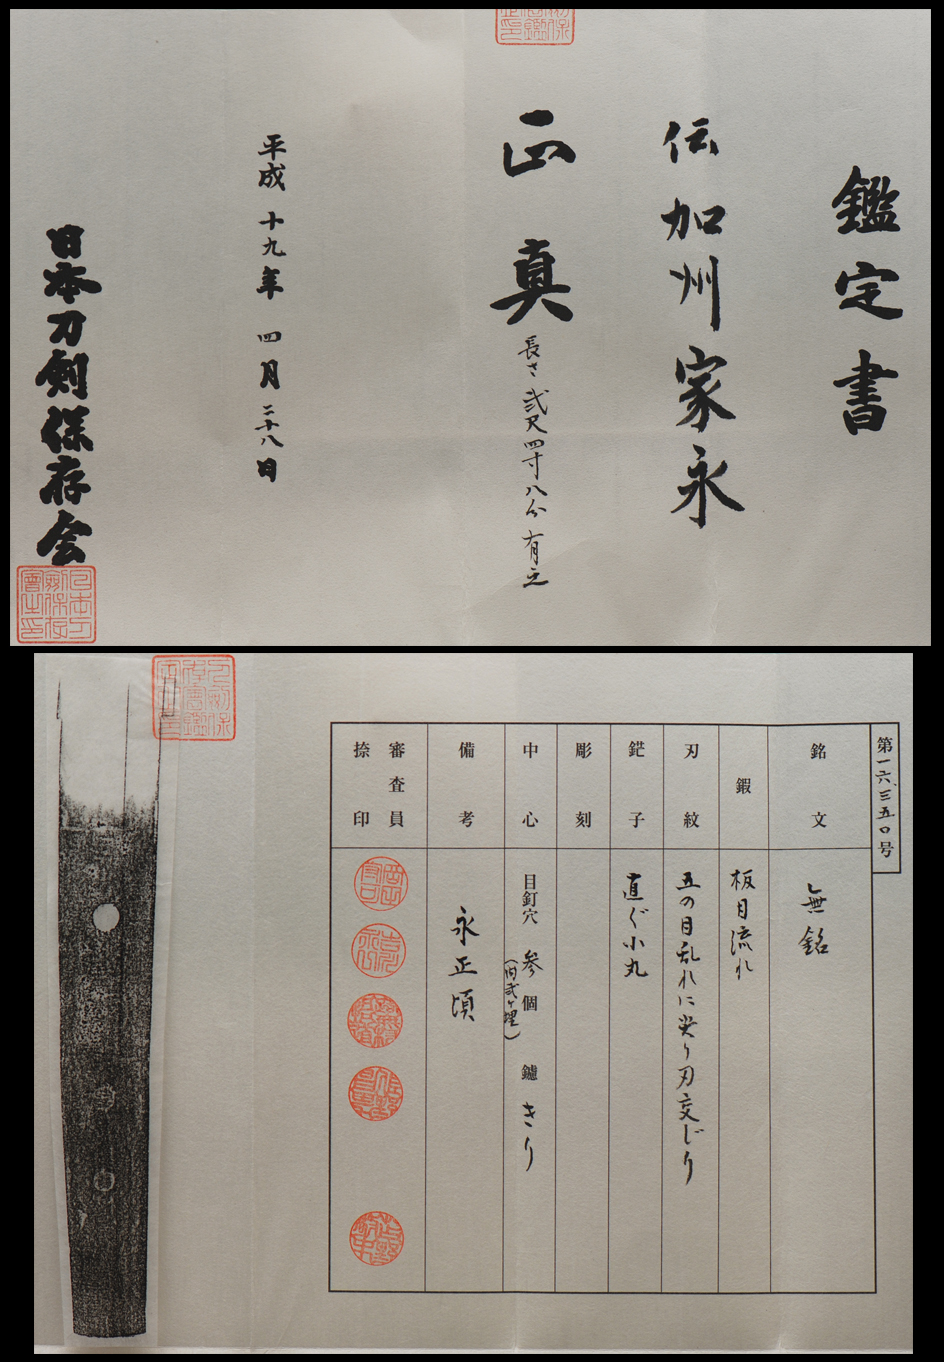 鑑定書
伝加州家永
正真
長さ弐尺四寸八分有之
平成十九年四月二十八日
日本刀剣保存会
第一六三五〇号
銘文
無銘
鍜
板目流れ
刃紋
五の目乱れに尖り刃交じり
鋩子
直ぐ小丸
彫刻
中心
目釘穴 参個 鑢 きり
(内弐ケ埋)
備考
永正頃
審査員
捺印